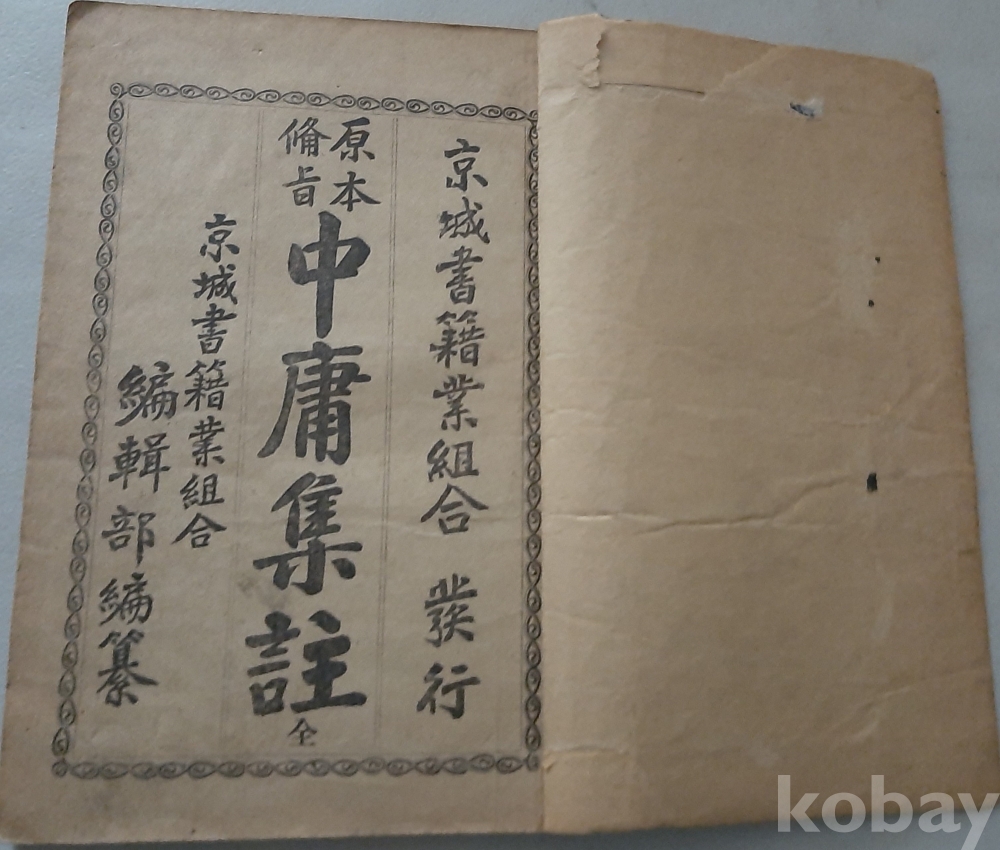 京城書籍業組合 發行
原本
備旨
中庸集註 全
京城書籍業組合
編輯部編纂
kobay